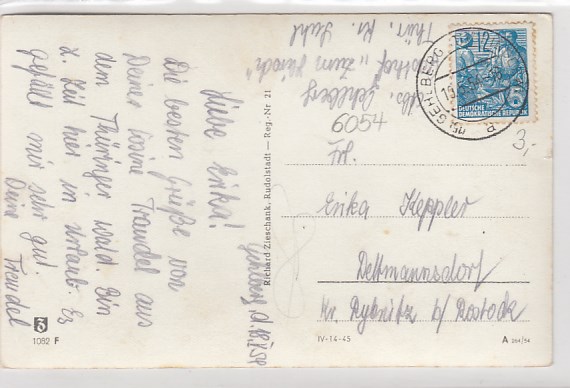 Gehlberg, d. 18.7.58
Liebe Erika!
Die besten Grüße von
Deiner Cosine Traudel aus
dem Thüringer Wald. Ein
z. Zeit hier in Urlaub. Es
gefällt mir sehr gut.
Deine
Traudel
1082 F
Richard Zieschank, Rudolstadt — Reg.-Nr 21
Abs. Gehlberg
Gasthof „Zum Hirsch"
Thür. Kr. Suhl
6054
12
GEHLBERG
DEUTSCHE
DEMOKRATISCHE REPUBLIK
3,-
Frl.
Erika Keppler
Dettmannsdorf
Kr. Rybnitz b/ Rostock
IV-14-45
A 264/54